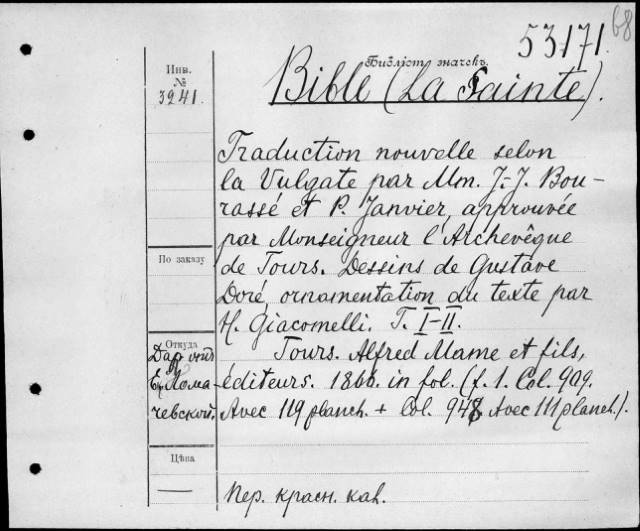 68
53171.
Библіот. значекъ.
Bible (La Sainte).
Инв.
№
3241.
Traduction nouvelle selon
la Vulgate par Mm. J.-J. Bou-
rassé et P. Janvier, approuvée
par Monseigneur l'Archevêque
de Tours. Dessins de Gustave
Doré, ornamentation du texte par
H. Giacomelli. T. I-II.
Tours. Alfred Mame et fils,
éditeurs. 1866. in fol. (f. 1. Col. 909.
Avec 119 planch. + Col. 948 Avec 111 planch.).
По заказу
Откуда
Дар
Лома-
чевской.
Цѣна
—
Пер. красн. каl.